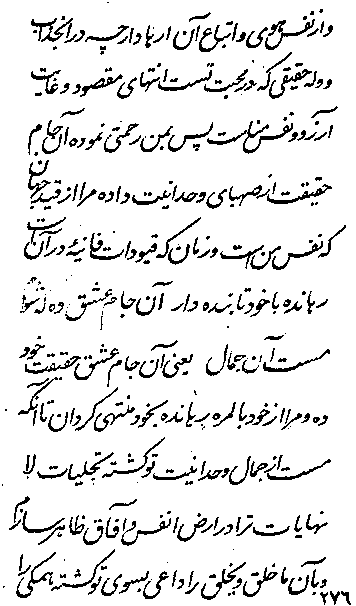 و از نفس و هوی و اتباع آن اربا دارچه در انجذاب
و وله حقیقی که در محبت تست انتهای مقصود و غایت
آرزو و نفس مناست پس بمن رحمتی نموده آن جام
حقیقت از صهبای وحدانیت داده مرا از قید جهان
که نفس من است و زمان که قیودات فانیهٔ در آن است
رهانده با خود تابنده دار آن جام عشق ده تا شوم
مست آن جمال یعنی آن جام عشق حقیقت خود
ده و مرا از خود بالمره رهانده بخود منتهی گردان تا آنکه
مست از جمال وحدانیت تو گشته تجلیات لا
نهایات ترا در ارض انفس و آفاق ظاهر سازم
و بآن ما خلق و یخلق را داعی بسوی تو گشته همگی را
۲۷۶